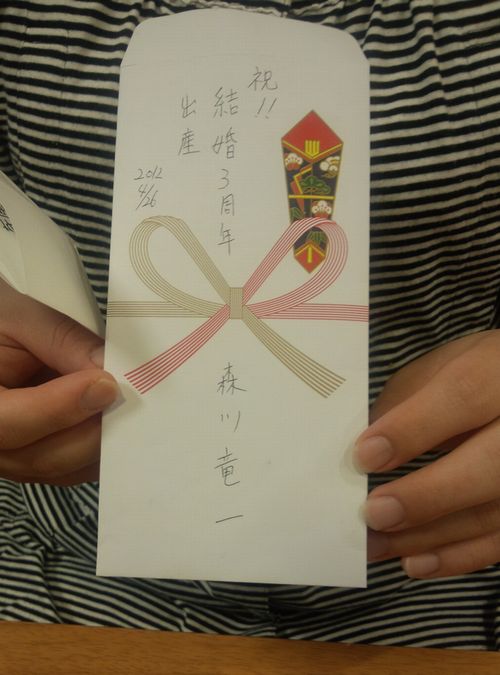 祝!!
結婚3周年
出産
2012
4/26
森川竜一